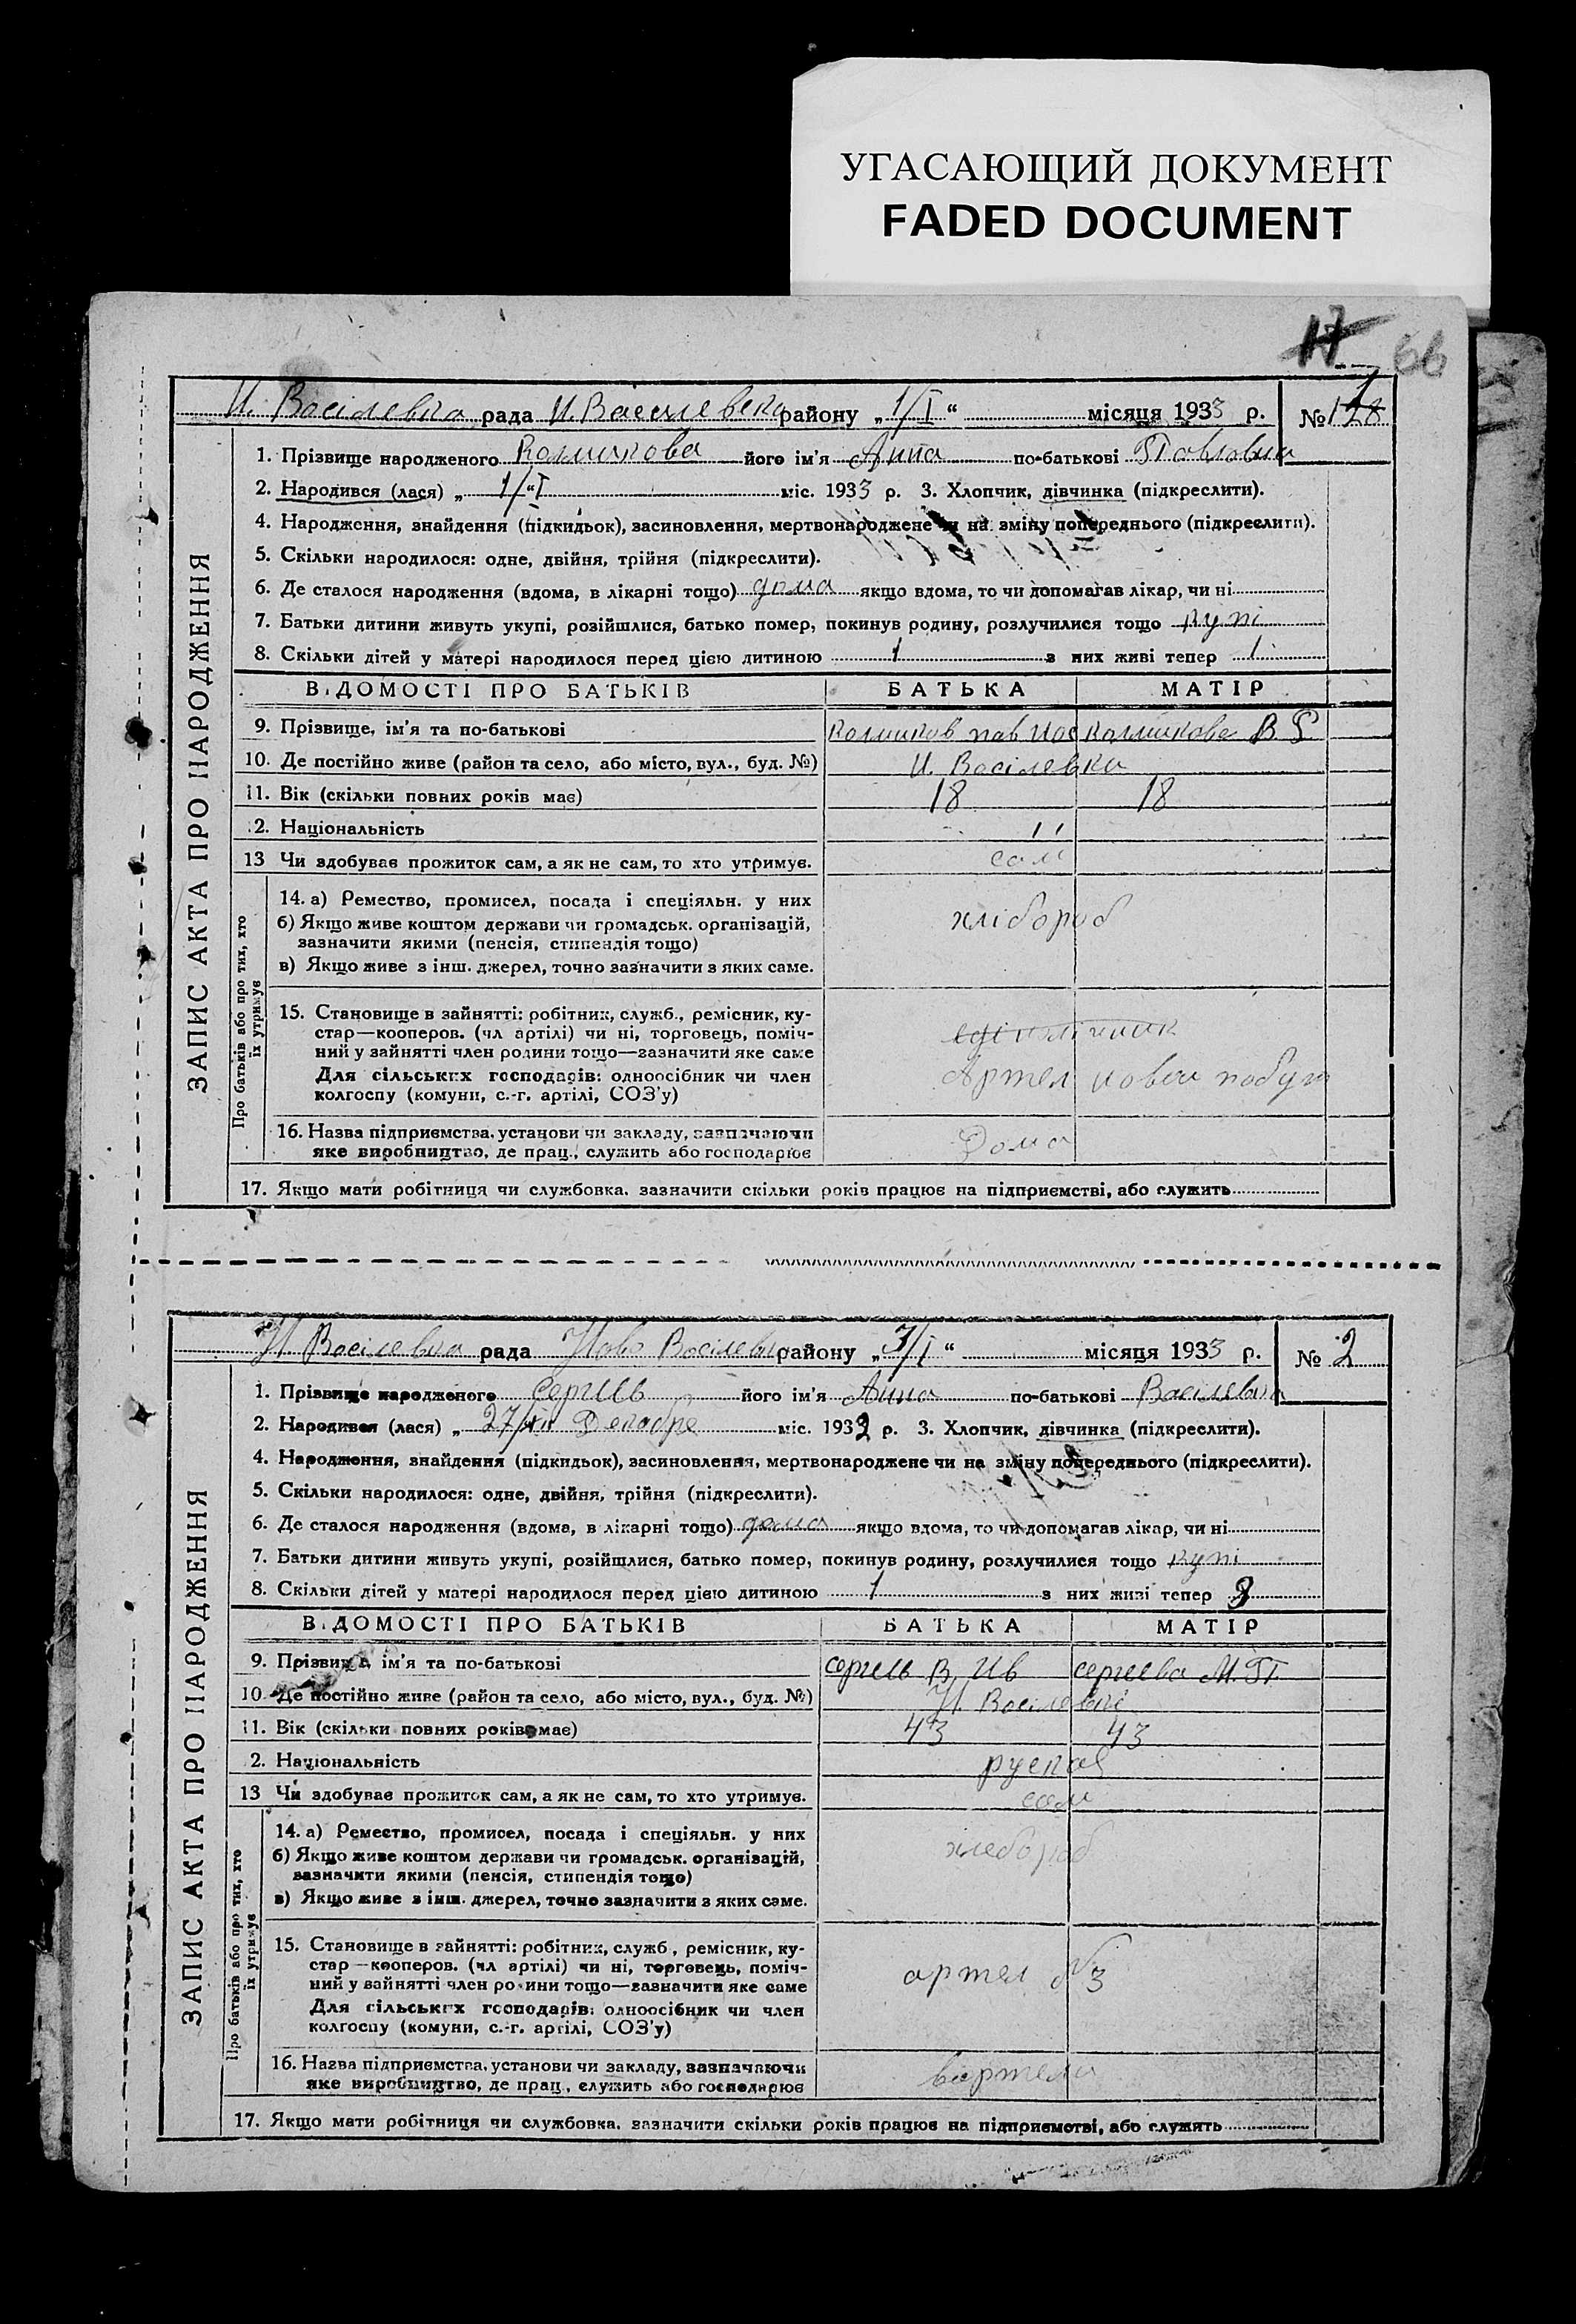 УГАСАЮЩИЙ ДОКУМЕНТ
FADED DOCUMENT
17 66
Н. Васілевка рада Н. Василевск району „ 1/I “ місяця 1933 р. № 1 128
ЗАПИС АКТА ПРО НАРОДЖЕННЯ
1. Прізвище народженого Калмикова його ім'я Анна по-батькові Павловна
2. Народився (лася) „ 1/“I міс. 1933 р. 3. Хлопчик, дівчинка (підкреслити).
4. Народження, знайдення (підкидьок), засиновлення, мертвонароджене чи на зміну попереднього (підкреслити).
5. Скільки народилося: одне, двійня, трійня (підкреслити).
6. Де сталося народження (вдома, в лікарні тощо) дома якщо вдома, то чи допомагав лікар, чи ні
7. Батьки дитини живуть укупі, розійшлися, батько помер, покинув родину, розлучилися тощо купі
8. Скільки дітей у матері народилося перед цією дитиною 1 з них живі тепер 1
ВІДОМОСТІ ПРО БАТЬКІВ БАТЬКА МАТІР
9. Прізвище, ім'я та по-батькові Калмиков пав Иос Калмикова В
10. Де постійно живе (район та село, або місто, вул., буд. №) Н. Васілевка
11. Вік (скільки повних років має) 18 18
12. Національність ′′
13 Чи здобував прожиток сам, а як не сам, то хто утримує. сам
Про батьків або про тих, хто їх утримує
14. а) Ремество, промисел, посада і спеціяльн. у них
б) Якщо живе коштом держави чи громадськ. організацій, хлібороб
зазначити якими (пенсія, стипендія тощо)
в) Якщо живе з інш. джерел, точно зазначити з яких саме.
15. Становище в зайнятті: робітник, служб., ремісник, ку-
стар—кооперов. (чл артілі) чи ні, торговець, поміч-
ний у зайнятті член родини тощо—зазначити яке саме
Для сільських господарів: одноосібник чи член Артел новой побут
колгоспу (комуни, с.-г. артілі, СОЗ'у)
16. Назва підприємства, установи чи закладу, зазначаючи Дома
яке виробництво, де прац., служить або господарює
17. Якщо мати робітниця чи службовка, зазначити скільки років працює на підприємстві, або служить
Н. Васілевка рада Ново Васілевк району „ 7/I “ місяця 1933 р. № 2
ЗАПИС АКТА ПРО НАРОДЖЕННЯ
1. Прізвище народженого Сергиев його ім'я Анна по-батькові Василевна
2. Народився (лася) „ 27/XII Декабре міс. 1932 р. 3. Хлопчик, дівчинка (підкреслити).
4. Народження, знайдення (підкидьок), засиновлення, мертвонароджене чи на зміну попереднього (підкреслити).
5. Скільки народилося: одне, двійня, трійня (підкреслити).
6. Де сталося народження (вдома, в лікарні тощо) дома якщо вдома, то чи допомагав лікар, чи ні
7. Батьки дитини живуть укупі, розійшлися, батько помер, покинув родину, розлучилися тощо купі
8. Скільки дітей у матері народилося перед цією дитиною 1 з них живі тепер
ВІДОМОСТІ ПРО БАТЬКІВ БАТЬКА МАТІР
9. Прізвище, ім'я та по-батькові Сергиев В. Ив Сергиева М. П.
10. Де постійно живе (район та село, або місто, вул., буд. №) Н. Василевкі
11. Вік (скільки повних років має) 43 43
12. Національність руская
13 Чи здобував прожиток сам, а як не сам, то хто утримує. сам
Про батьків або про тих, хто їх утримує
14. а) Ремество, промисел, посада і спеціяльн. у них
б) Якщо живе коштом держави чи громадськ. організацій, хлебороб
зазначити якими (пенсія, стипендія тощо)
в) Якщо живе з інш. джерел, точно зазначити з яких саме.
15. Становище в зайнятті: робітник, служб., ремісник, ку-
стар—кооперов. (чл артілі) чи ні, торговець, поміч- артел №3
ний у зайнятті член родини тощо—зазначити яке саме
Для сільських господарів: одноосібник чи член
колгоспу (комуни, с.-г. артілі, СОЗ'у)
16. Назва підприємства, установи чи закладу, зазначаючи вартели
яке виробництво, де прац., служить або господарює
17. Якщо мати робітниця чи службовка, зазначити скільки років працює на підприємстві, або служить